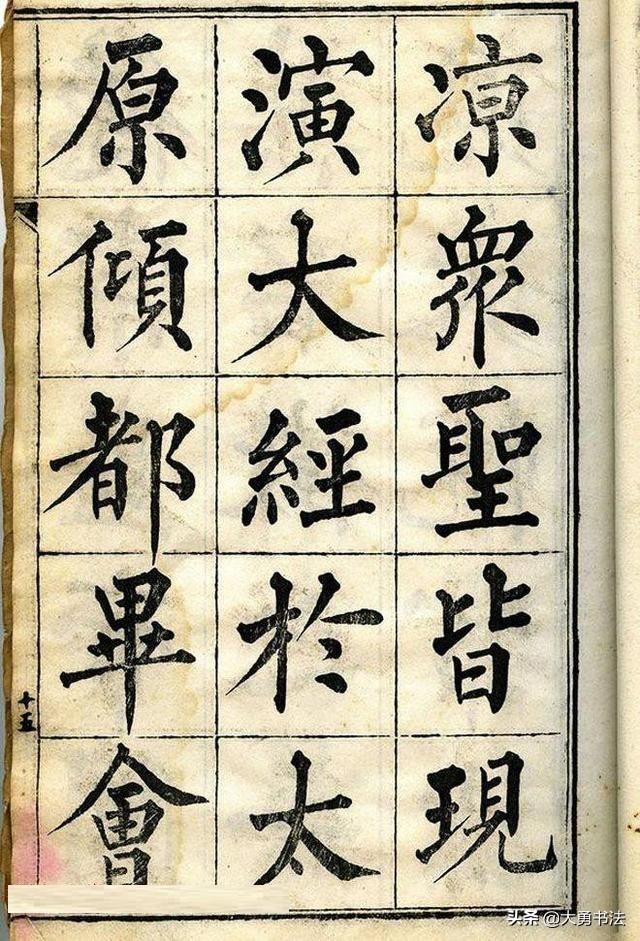 凉眾聖皆現
演大經於太
原傾都畢會
十五
头条 @大勇书法